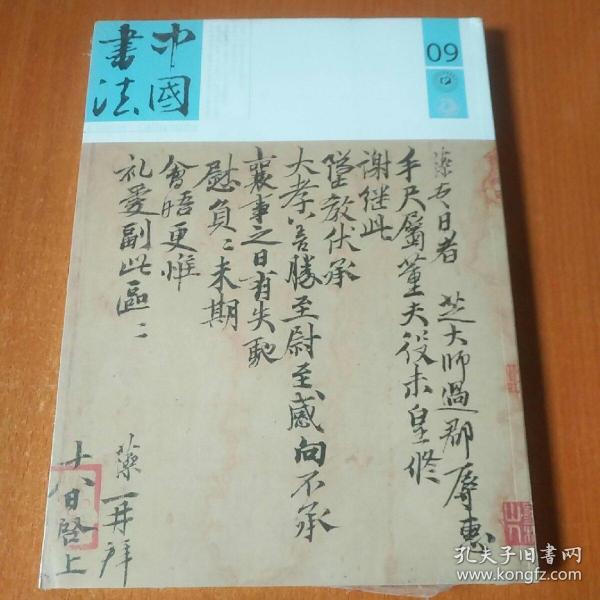 中國
書法
09
槩去日者 芝大師過郡辱惠
手尺屬董夫役未皇修
謝继此
陞敭伏承
大孝以善勝至慰至感向不承
襄事之日有失馳
慰負〻未期
會晤更惟
礼愛副此區〻
再拜
十八日啓上
孔夫子旧书网
www.kongfz.com